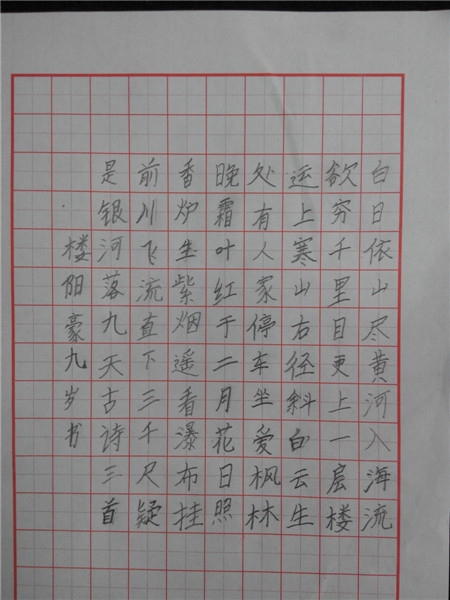 白日依山尽黄河入海流
欲穷千里目更上一层楼
运上寒山右径斜白云生
处有人家停车坐爱枫林
晚霜叶红于二月花日照
香炉生紫烟遥看瀑布挂
前川飞流直下三千尺疑
是银河落九天古诗三首
楼阳豪九岁书